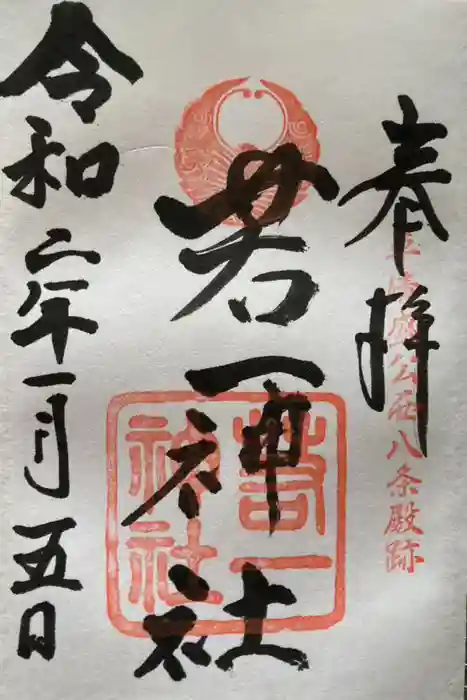 奉拝
平清盛公西八条殿跡
若一神社
若一
神社
令和二年一月五日